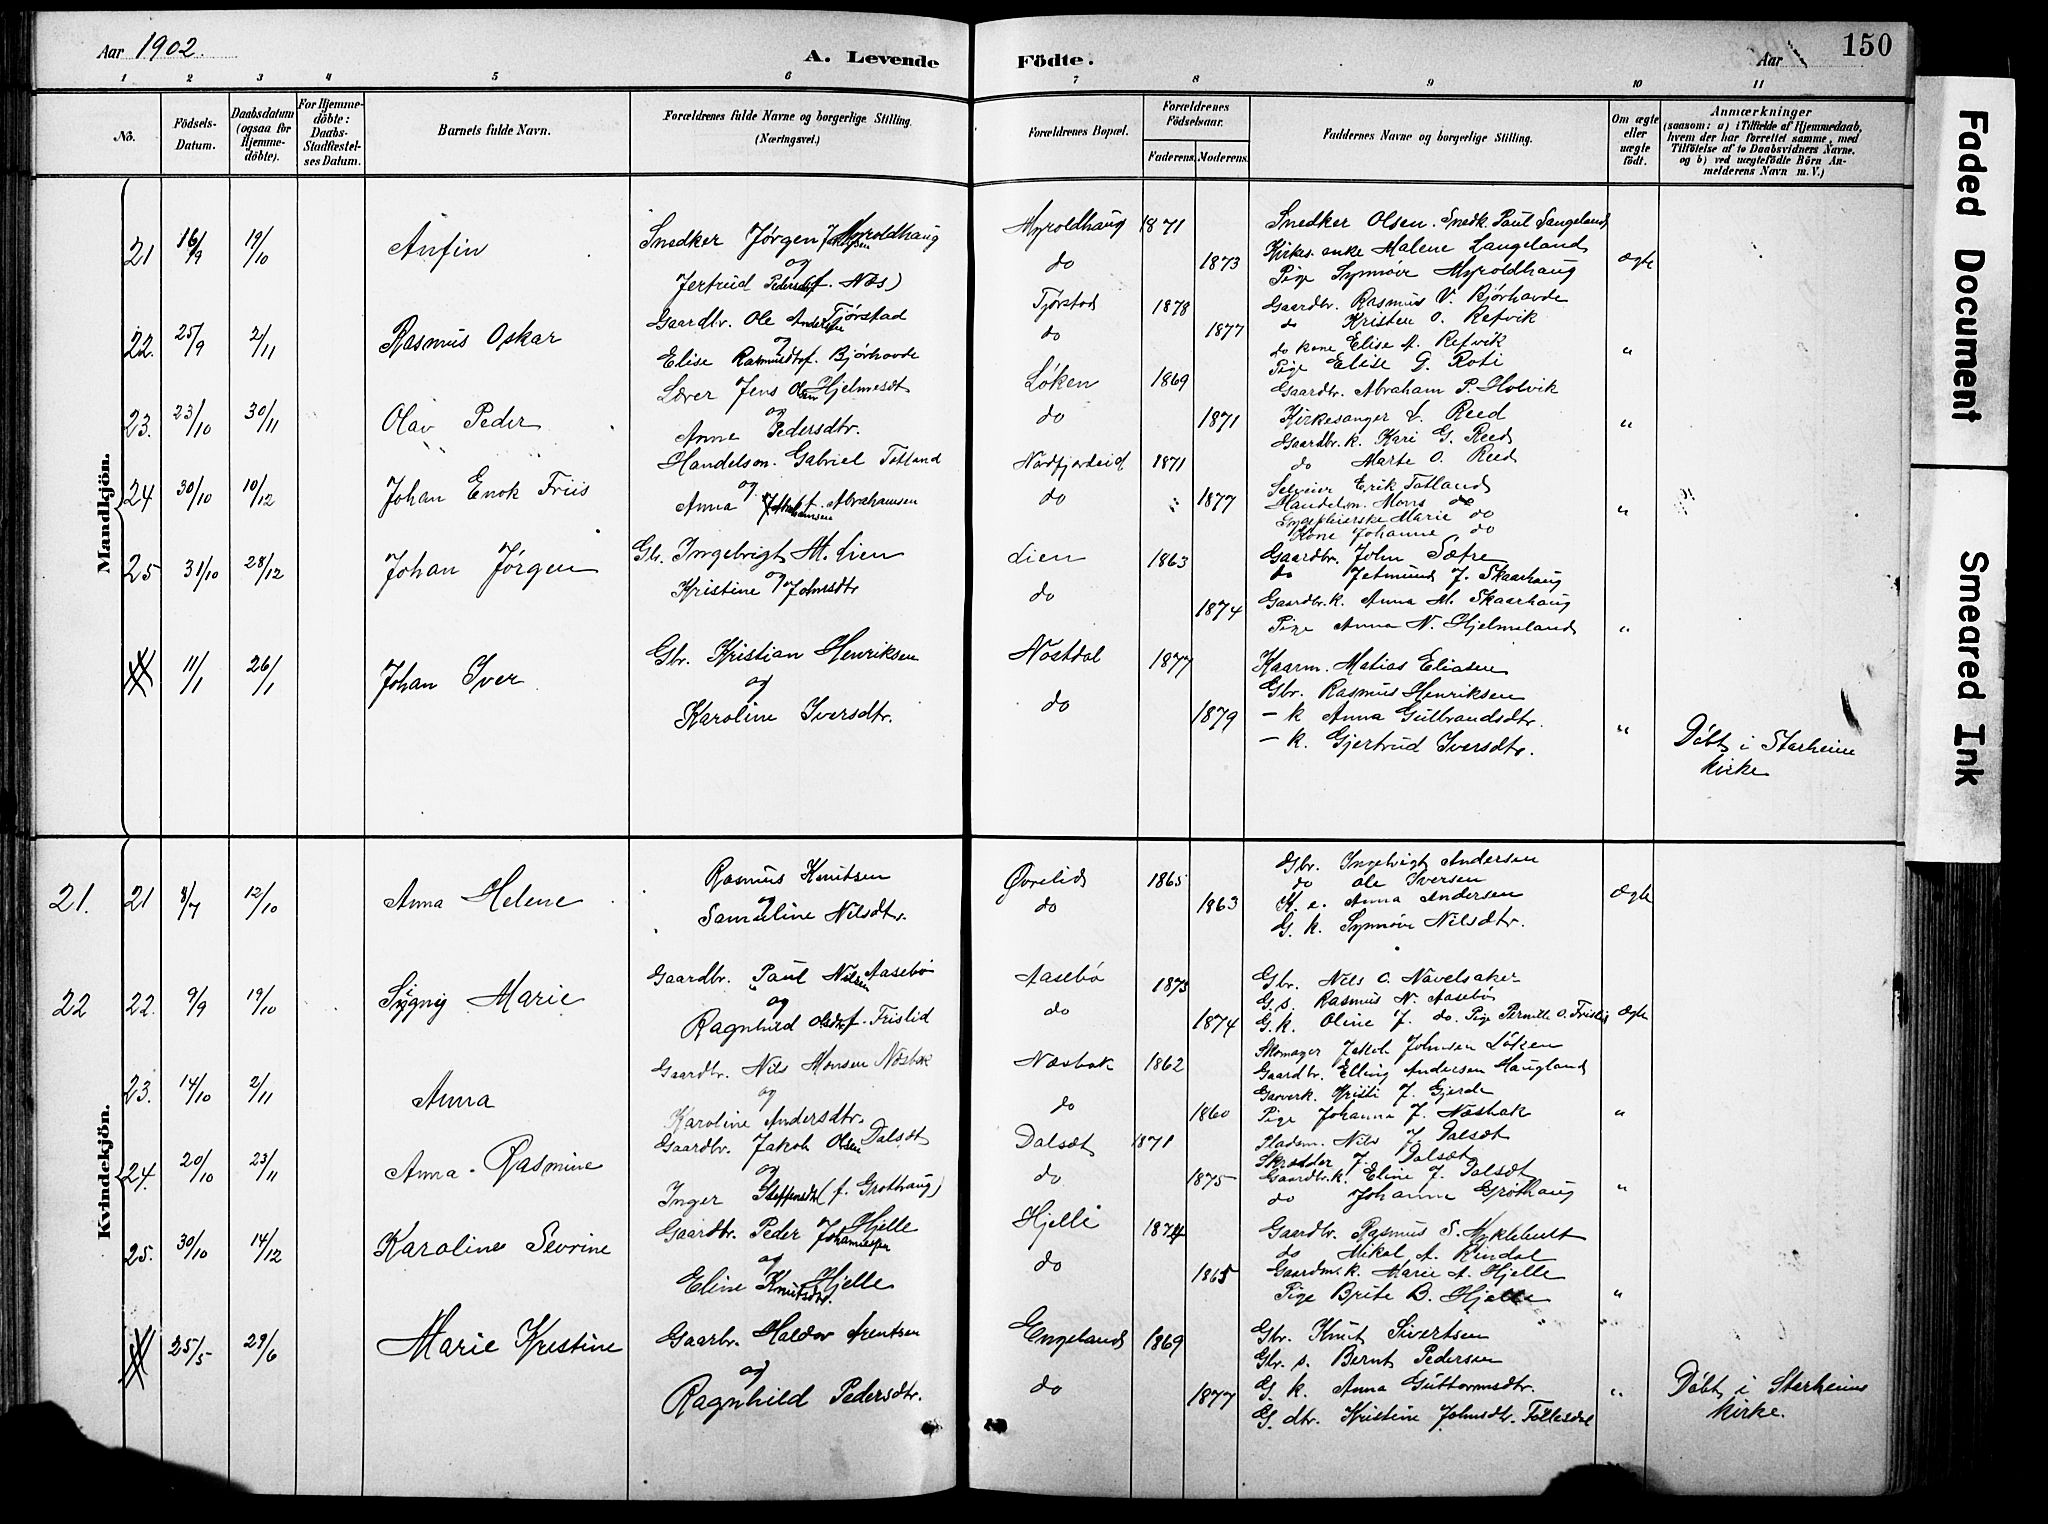 Aar 1902.
A. Levende Födte.
Aar
150
1 2 3 4 5 6 7 8 9 10 11
No.
Födsels-Datum.
Daabsdatum (ogsaa for Hjemme-döbte).
For Hjemme-döbte: Daabs-Stadfæstel-ses Datum.
Barnets fulde Navn.
Forældrenes fulde Navne og borgerlige Stilling. (Næringsvei.)
Forældrenes Bopæl.
Forældrenes Födselsaar.
Faderens. Moderens.
Faddernes Navne og borgerlige Stilling.
Om ægte eller uægte födt.
Anmærkninger
(saasom: a) i Tilfælde af Hjemmedaab, hvem der har forrettet samme, med Tilföielse af to Daabsvidners Navne. og b) ved uægtefödte Börn An-melderens Navn m. V.)
Mandkjön.
21 16/9 19/10 Anfin
Snedker Jørgen Myroldhaug
og
Jertrud Pedersdtr f. Næs)
Myroldhaug 1871
do 1873
Snedker Olsen. Snedk. Paul Langeland
Kirkes. enke Malene Langeland
Pige Synnøve Myroldhaug
Ægte
22. 25/9 2/11 Rasmus Oskar
Gaardbr. Ole Andersen Tjørstad
og
Elise Rasmusdtr f. Bjørhovde
Tjørstad 1878
do 1877
Gaardbr. Rasmus V. Bjørhovde
do Kristen O. Refvik
do kone Elise A. Refvik
Pige Elise G. Roti
"
23. 23/10 30/11 Olav Peder
Lærer Jens Olsen Hjelmesdt
og
Anne Pedersdtr.
Løken 1869
do 1871
Gaardbr. Abraham P. Holvik
Kirkesanger A. Reed
Gaardbr. k. Kari G. Reed
do Marte O. Reed
"
24 30/10 10/12 Johan Enok Friis
Handelsm. Gabriel Totland
og
Anna f. Abrahamsen
Nordfjordeid 1871
do 1877
Selveier Erik Totland
Handelsm. Mons do
Sygepleierske Marie do
Kone Johanne do
"
25 31/10 28/12 Johan Jørgen
Gbr. Ingebrigt M. Lien
og
Kristine Johnsdtr
Lien 1863
do 1874
Gaardbr. John Sætre
do Jetmund J. Skaarhaug
Gaardbr. k. Anna M. Skaarhaug
Pige Anna N. Hjelmeland
"
11/1 26/1 Johan Iver
Gbr. Kristian Henriksen
og
Karoline Iversdtr.
Nøstdal 1877
do 1879
Kaarm. Matias Eliasen
Gbr. Rasmus Henriksen
– k Anna Gulbrandsdtr.
– k. Gjertrud Iversdtr.
"
Døbt i Starheim
Kirke
Kvindekjön.
21. 21 8/7 12/10 Anna Helene
Rasmus Knutsen
og
Samueline Nilsdtr.
Øvrelid 1865
do 1863
Gbr. Ingebrigt Andersen
do Ole Iversen
K. e. Anna Andersen
G. k. Synnøve Nilsdtr.
Ægte
22 22. 9/9 19/10 Signy Marie
Gaardbr. Paul Nilsen Aasebø
og
Ragnhild Olsdtr f. Frislid
Aasebø 1873
do 1874
Gbr. Nils O. Navelsaker
G. s. Rasmus N. Aasebø
G. k. Oline J. do. Pige Pernille O. Frislid
Ægte
23. 14/10 2/11 Anna
Gaardbr. Nils Monsen Næsbak
og
Karoline Andersdtr.
Næsbak 1862
do 1860
Skomager Jakob Johnsen Løken
Gaardbr. Elling Andersen Haugland
Garverk. Kristi J. Gjerde
Pige Johanna J. Næsbak
"
24. 20/10 23/11 Anna Rasmine
Gaardbr. Jakob Olsen Dalsæt
og
Inger Steffensdtr (f. Grothaug)
Dalsæt 1871
do 1875
Pladsm. Nils J. Dalsæt
Skrædder J. Dalsæt
Gaardbr. k. Eline J. Dalsæt
do Johanne Grothaug
"
25. 30/10 14/12 Karoline Sevrine
Gaardbr. Peder Johannesen Hjelle
og
Eline Knutsdtr. Hjelle
Hjelle 1874
do 1865
Gaardbr. Rasmus S. Myklebust
do Mikal A. Rindal
Gaardm. k. Marie A. Hjelle
Pige Brite B. Hjelle
"
25/5 29/6 Marie Kristine
Gaarbr. Haldor Arentsen
og
Ragnhild Pedersdtr.
Engeland 1869
do 1877
Gbr. Knut Sivertsen
Gbr. s. Bernt Pedersen
G. k. Anna Guttormsdtr.
G. dtr. Kristine Johnsdtr. Follesdal
"
Døbt i Starheims
Kirke.
Faded Document
Smeared Ink